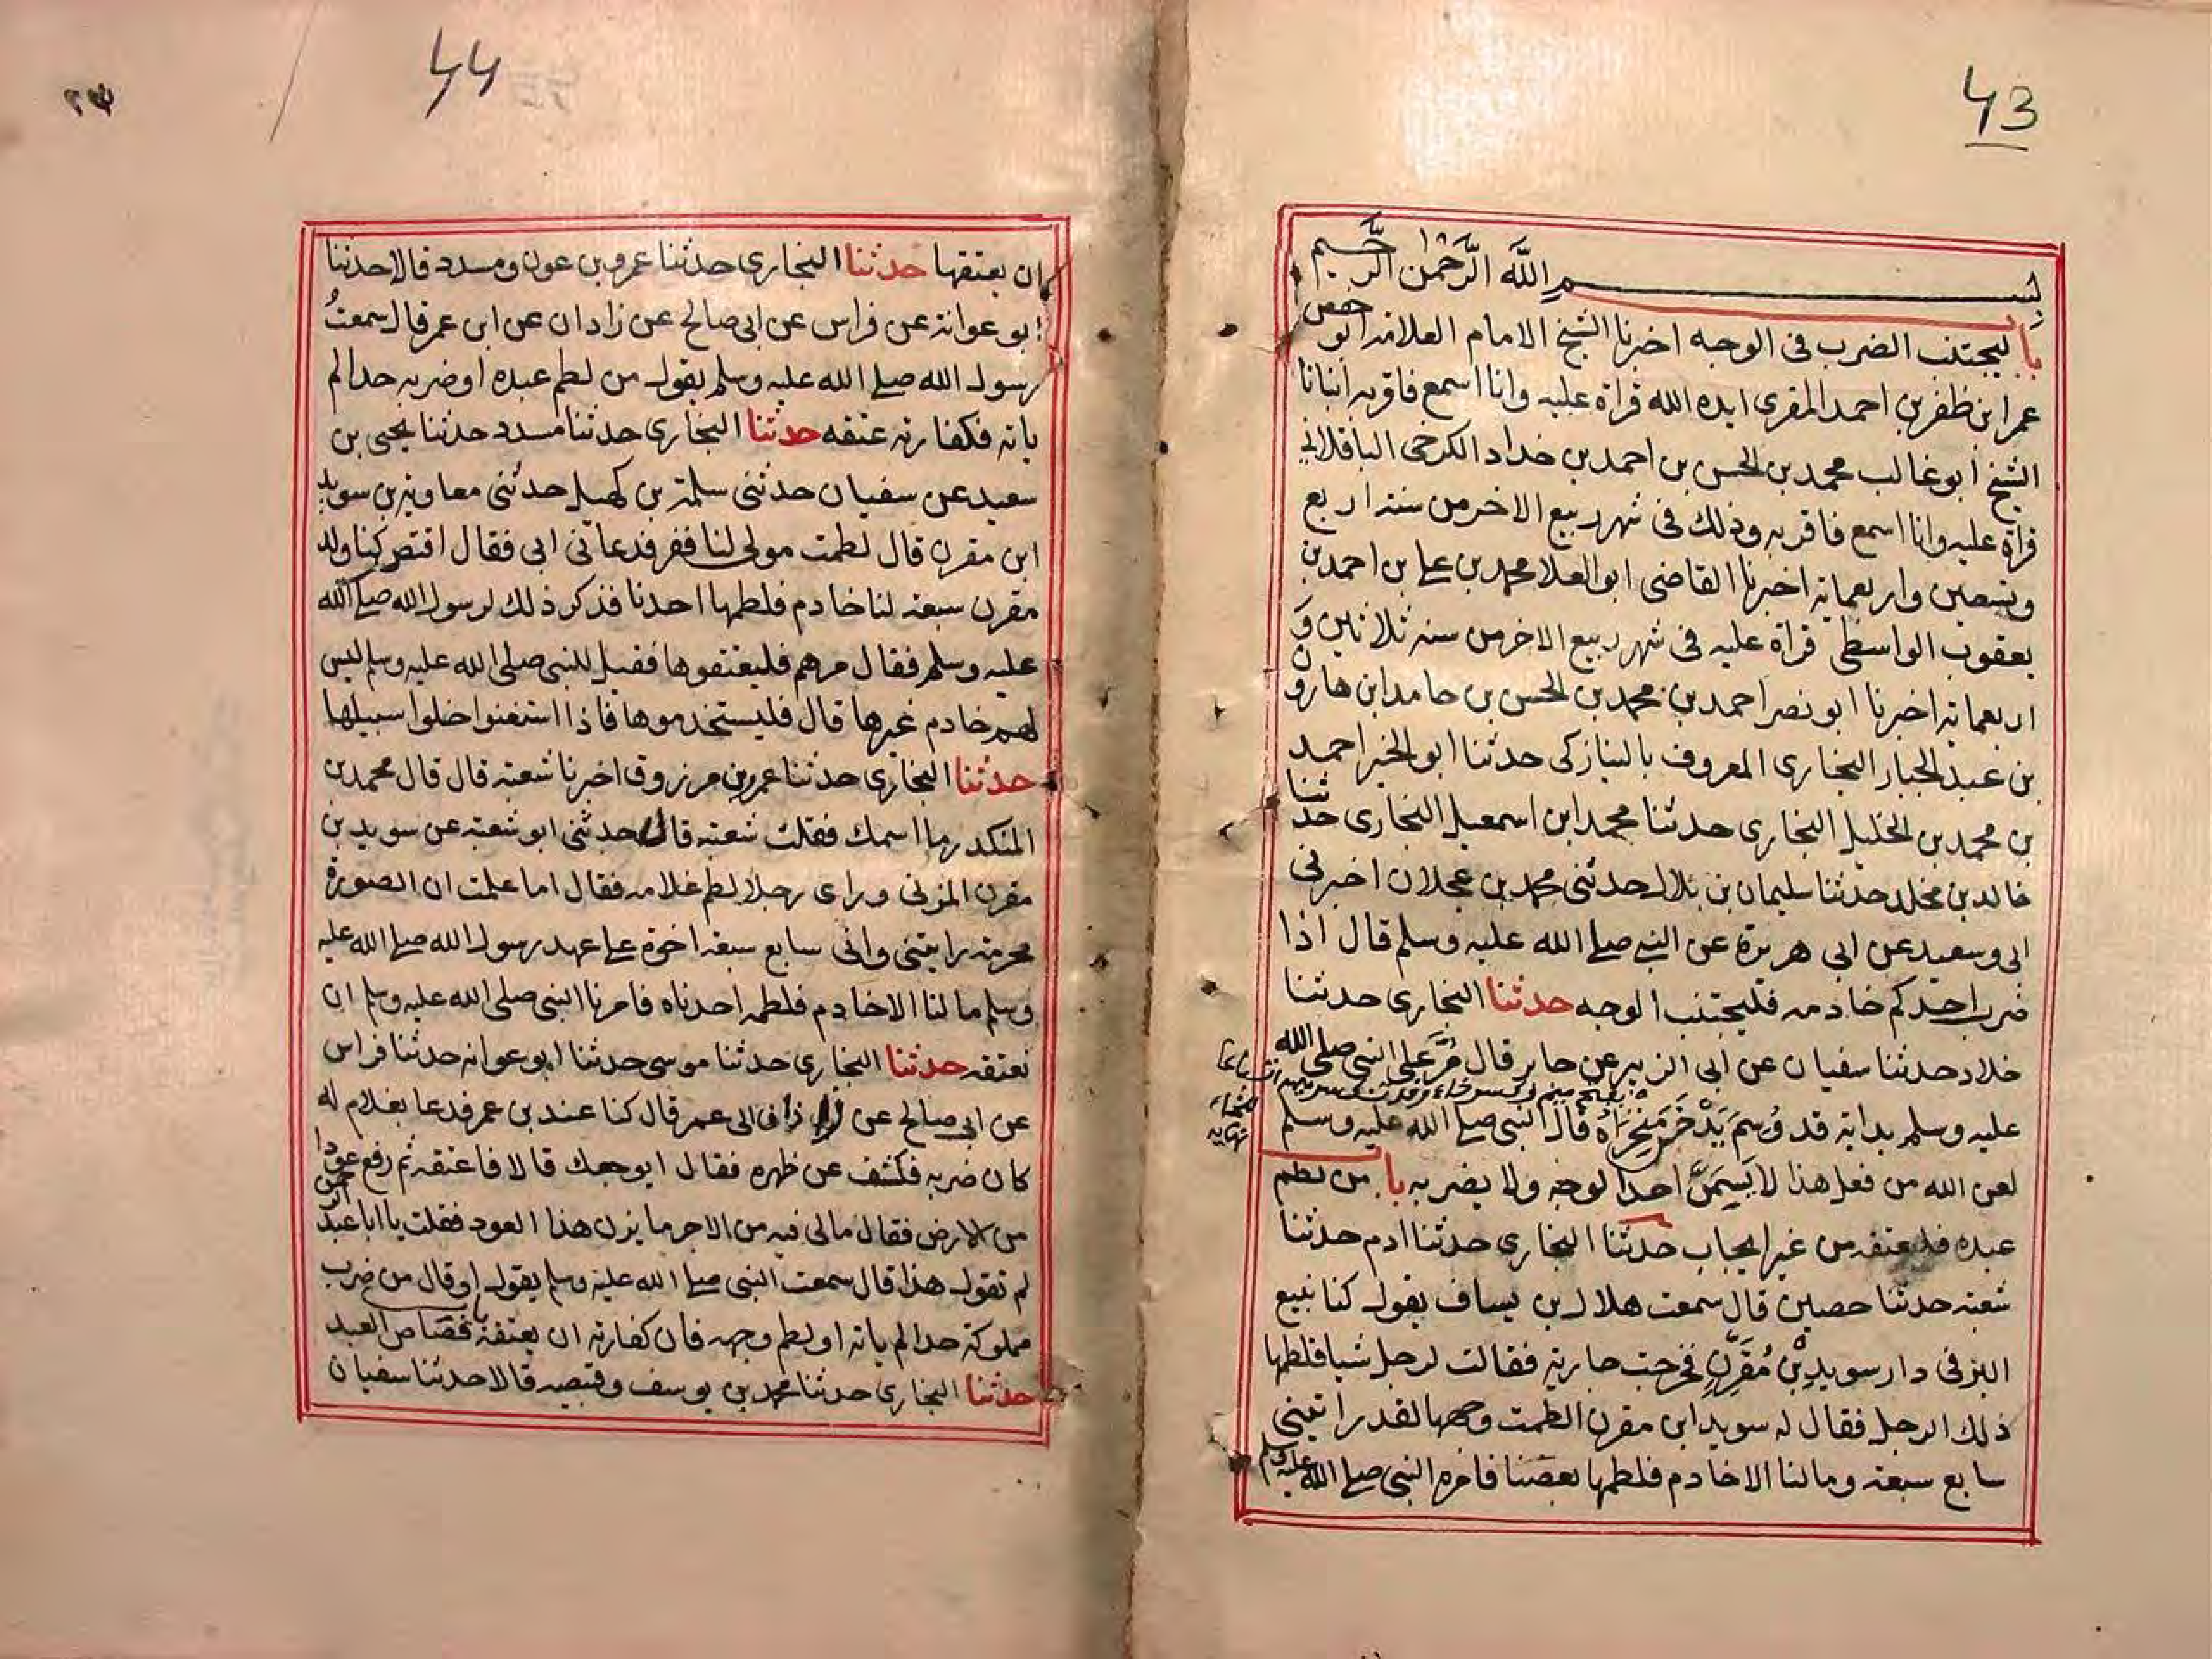 43
بسم الله الرحمن الرحيم
باب ليجتنب الضرب فى الوجه اخبرنا الشيخ الامام العلامه ابو حفص
عمر ابن ظفر بن احمد المقرى ايده الله قراة عليه وانا اسمع فاقر به انبانا
الشيخ ابو غالب محمد بن الحسن بن احمد بن خداد الكرجى الباقلانى
قراة عليه وانا اسمع فاقر به وذلك فى شهر ربيع الاخر من سنة اربع
وتسعين واربعماية اخبرنا القاضى ابو العلا محمد بن على بن احمد بن
يعقوب الواسطى قراة عليه فى شهر ربيع الاخر من سنه ثلاثين و
اربعماية اخبرنا ابو نصر احمد بن محمد بن الحسن بن حامد ابن هارون
بن عبد الجبار البخارى المعروف بالنيازكى حدثنا ابو الخير احمد
بن محمد بن الخليل البخارى حدثنا محمد ابن اسمعيل البخارى حدثنا
خالد بن مخلد حدثنا سليمان بن بلال حدثنى محمد بن عجلان اخبرنى
ابى وسعيد عن ابى هريرة عن النبى صلى الله عليه وسلم قال اذا
ضرب احدكم خادمه فليجتنب الوجه حدثنا البخارى حدثنا
خلاد حدثنا سفيان عن ابى الزبير عن جابر قال مُرَّ على النبى صلى الله
عليه وسلم بدابة قد وُسِمَ يَدْخَن مَنْخِرَاهُ قال النبى صلى الله عليه وسلم
لعن الله من فعل هذا لا يَسِمَنَّ احدا لوجه ولا يضربه باب من لطم
عبده فليعتقه من غير ايجاب حدثنا البخارى حدثنا ادم حدثنا
شعبة حدثنا حصين قال سمعت هلال بن يساف يقول كنا نبيع
البز فى دار سويد بْنِ مُقَرِّنٍ فخرجت جارية فقالت لرجل شيا فلطمها
ذلك الرجل فقال له سويد ابن مقرن الطمت وجهها لقد رايتنى
سابع سبعة وما لنا الا خادم فلطمها بعضنا فامره النبى صلى الله عليه وسلم
44
ان يعتقها حدثنا البخارى حدثنا عمرو بن عون ومسدد قالا حدثنا
ابو عوانة عن فراس عن ابى صالح عن زادان عن ابن عمر قال سمعتُ
رسول الله صلى الله عليه وسلم يقول من لطم عبده او ضربه حدا لم
ياته فكفارته عتقه حدثنا البخارى حدثنا مسدد حدثنا يحيى بن
سعيد عن سفيان حدثنى سلمة بن كهيل حدثنى معاوية بن سويد
ابن مقرن قال لطمت مولى لنا ففر فدعانى ابى فقال اقتص كنا ولد
مقرن سبعة لنا خادم فلطمها احدنا فذكر ذلك لرسول الله صلى الله
عليه وسلم فقال مرهم فليعتقوها فقيل للنبى صلى الله عليه وسلم ليس
لهم خادم غيرها قال فليستخدموها فاذا استغنوا خلوا سبيلها
حدثنا البخارى حدثنا عمرو بن مرزوق اخبرنا شعبة قال قال محمد بن
المنكدر ما اسمك فقلت شعبة قال حدثنى ابو شعبة عن سويد بن
مقرن المزنى وراى رجلا لطم غلامه فقال اما علمت ان الصورة
محرمة رايتنى وانى سابع سبعة اخوة على عهد رسول الله صلى الله عليه
وسلم ما لنا الا خادم فلطمه احدناه فامرنا النبى صلى الله عليه وسلم ان
نعتقه حدثنا البخارى حدثنا موسى حدثنا ابو عوانه حدثنا فراس
عن ابى صالح عن زاذان ابى عمر قال كنا عند بن عمر فدعا بغلام له
كان ضربه فكشف عن ظهره فقال ايوجعك قال لا فاعتقه ثم رفع عودا
من الارض فقال مالى فيه من الاجر ما يزن هذا العود فقلت يا ابا عبد الرحمن
لم تقول هذا قال سمعت النبى صلى الله عليه وسلم يقول او قال من ضرب
مملوكه حدا لم ياته او لطم وجهه فان كفارته ان يعتقه باب قصاص العبد
حدثنا البخارى حدثنا محمد بن يوسف وقبيصه قالا حدثنا سفيان